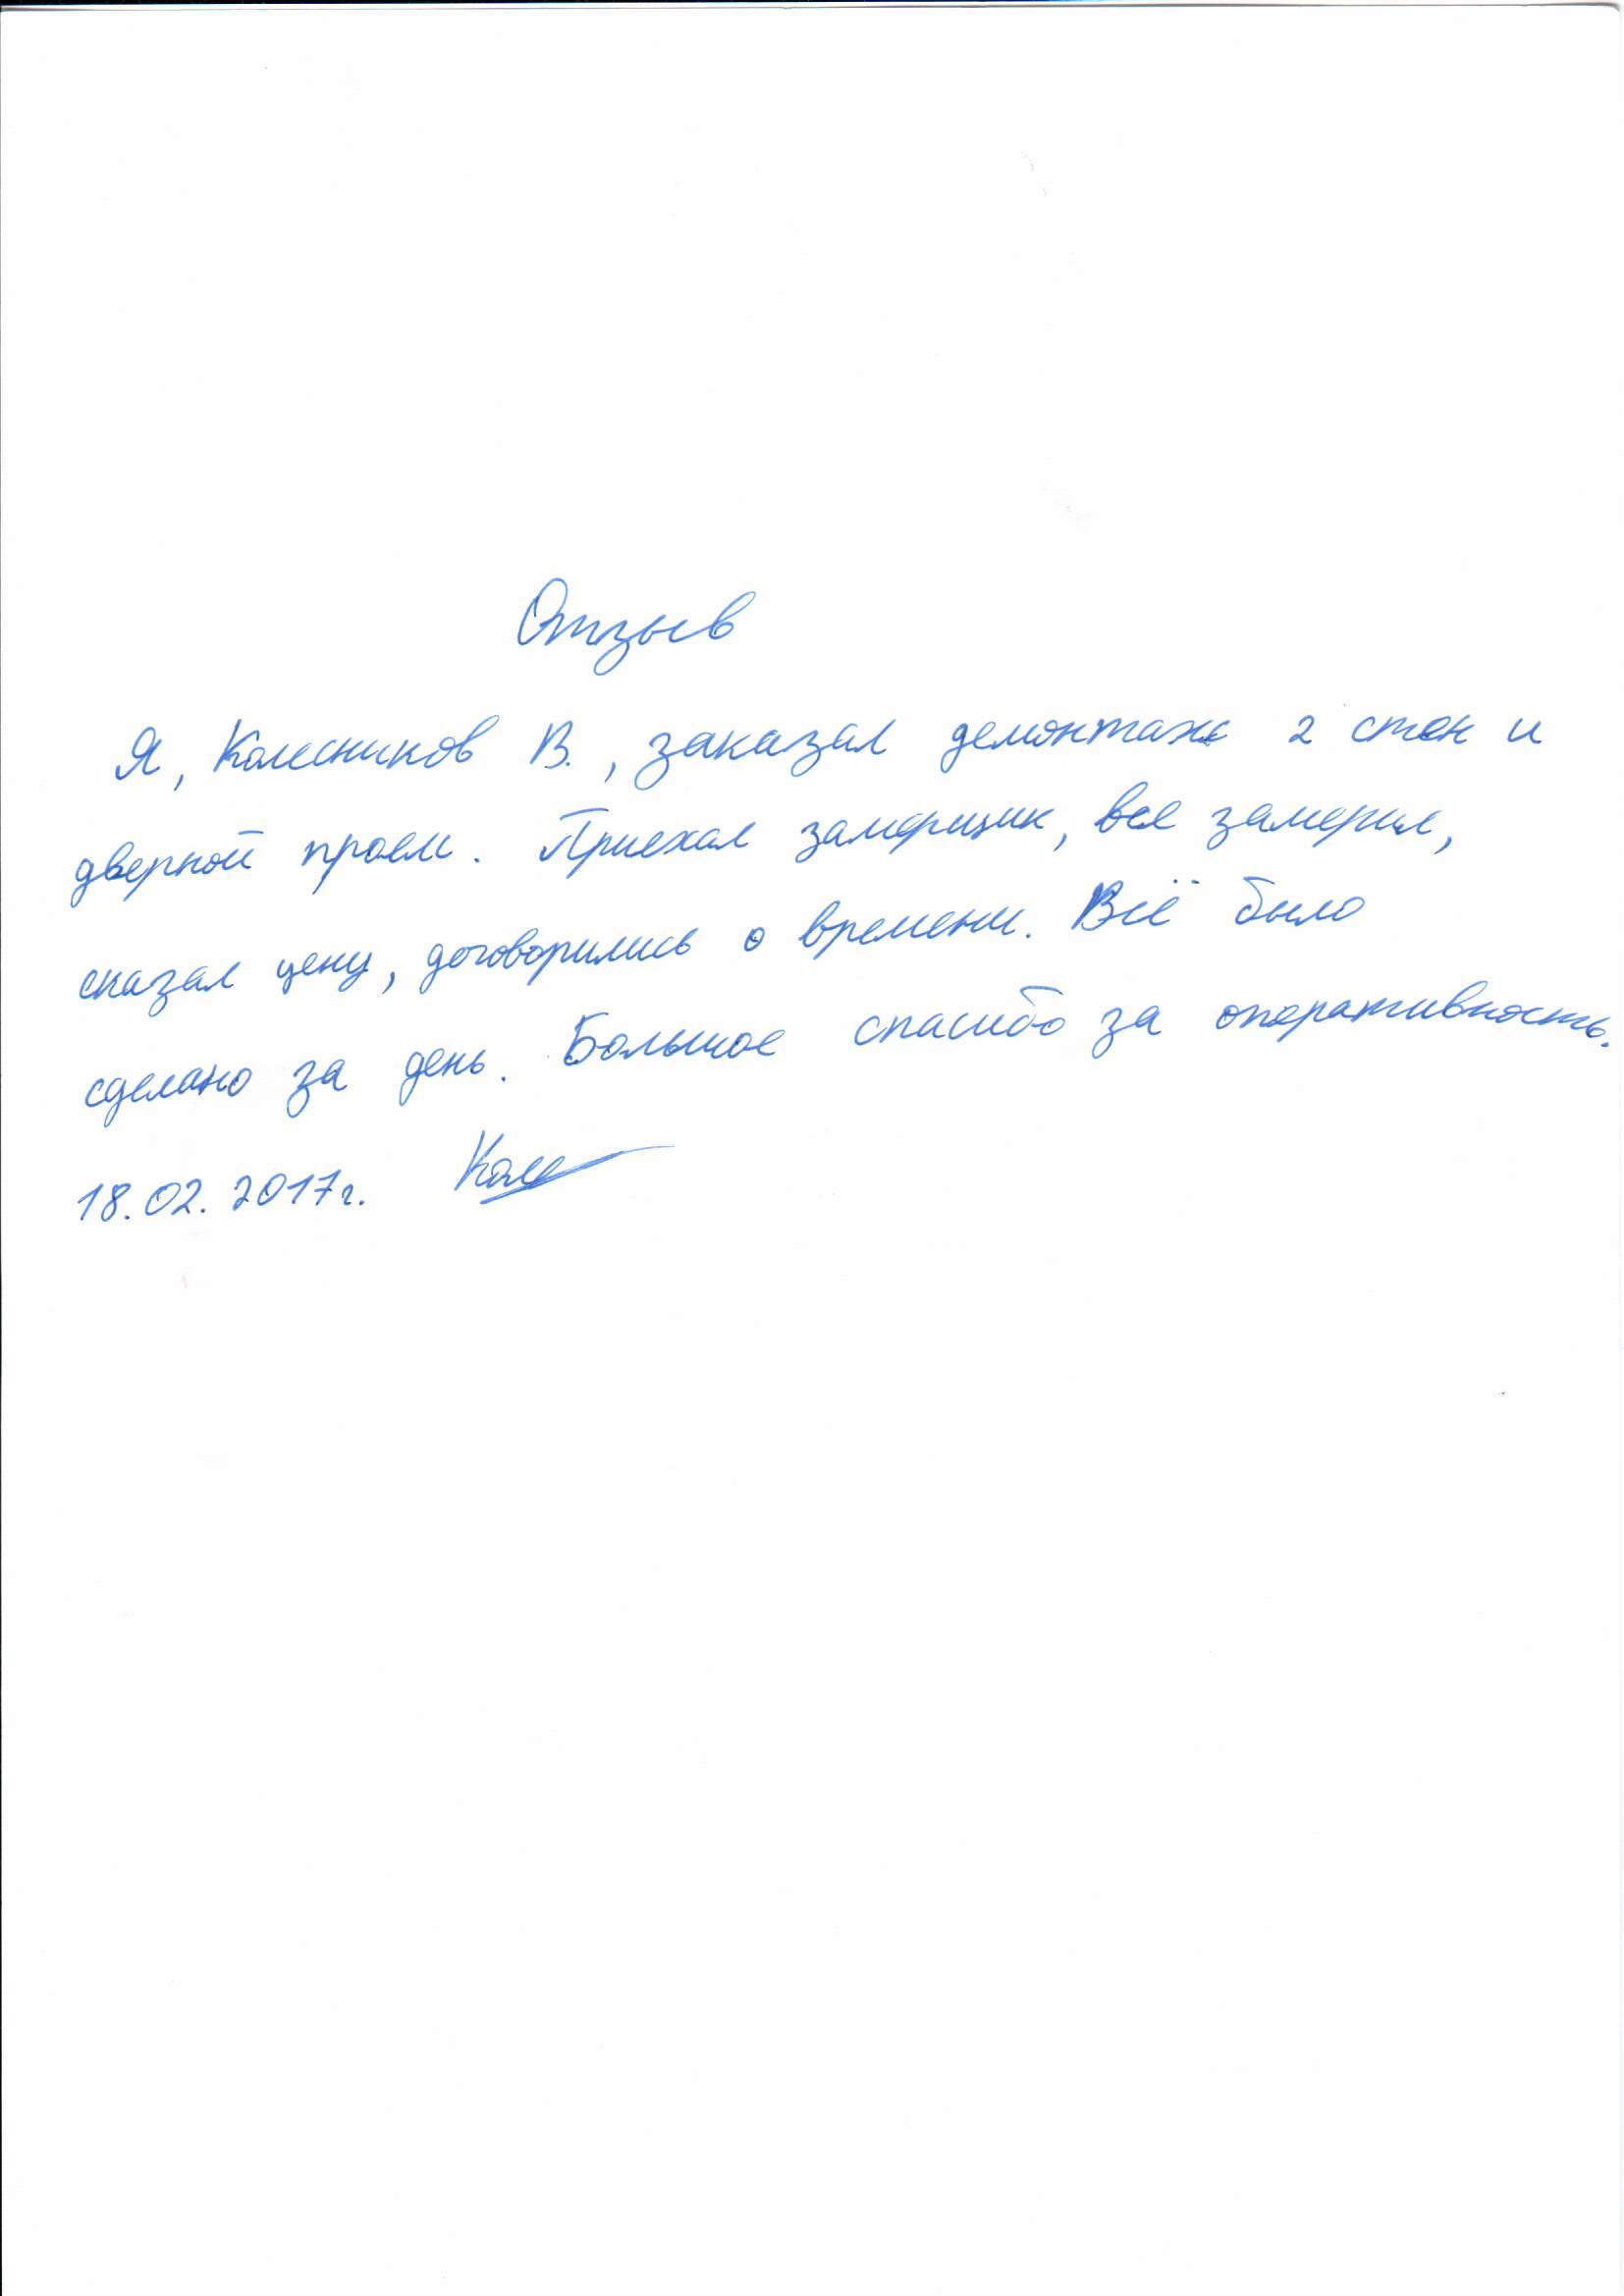 Отзыв
Я, Колесников В., заказал демонтаж 2 стен и
дверной проем. Приехал замерщик, все замерил,
сказал цену, договорились о времени. Всё было
сделано за день. Большое спасибо за оперативность.
18.02.2017г. Колес